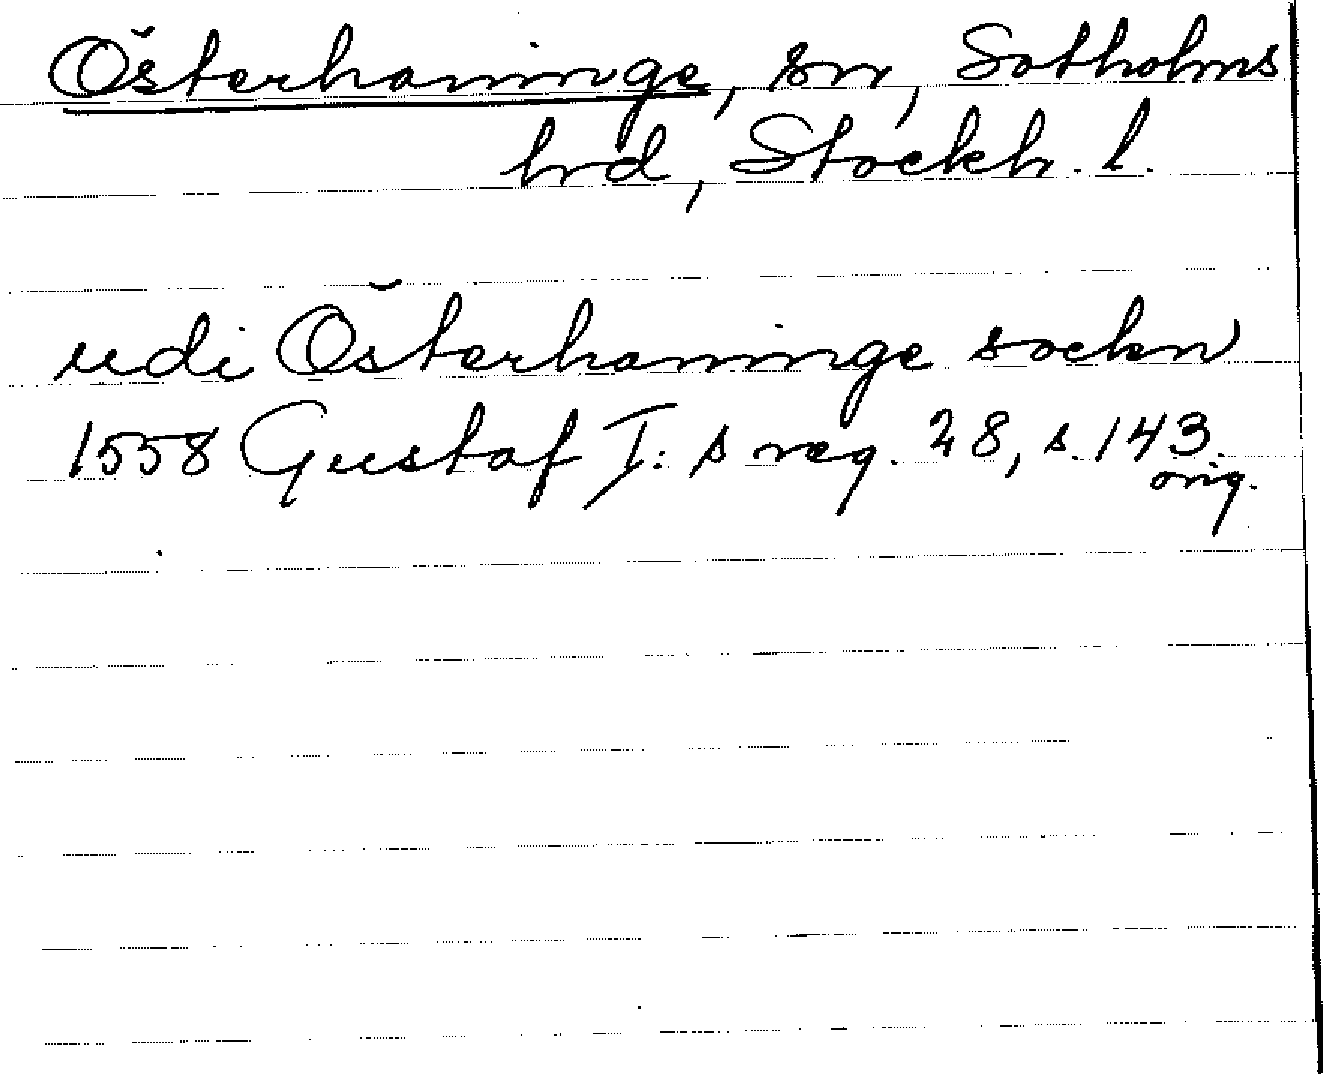 Österhaninge, sn, Sotholms
hd, Stockh. l.
udi Österhaninge sochn
1558 Gustaf I: s reg. 28, s. 143.
orig.